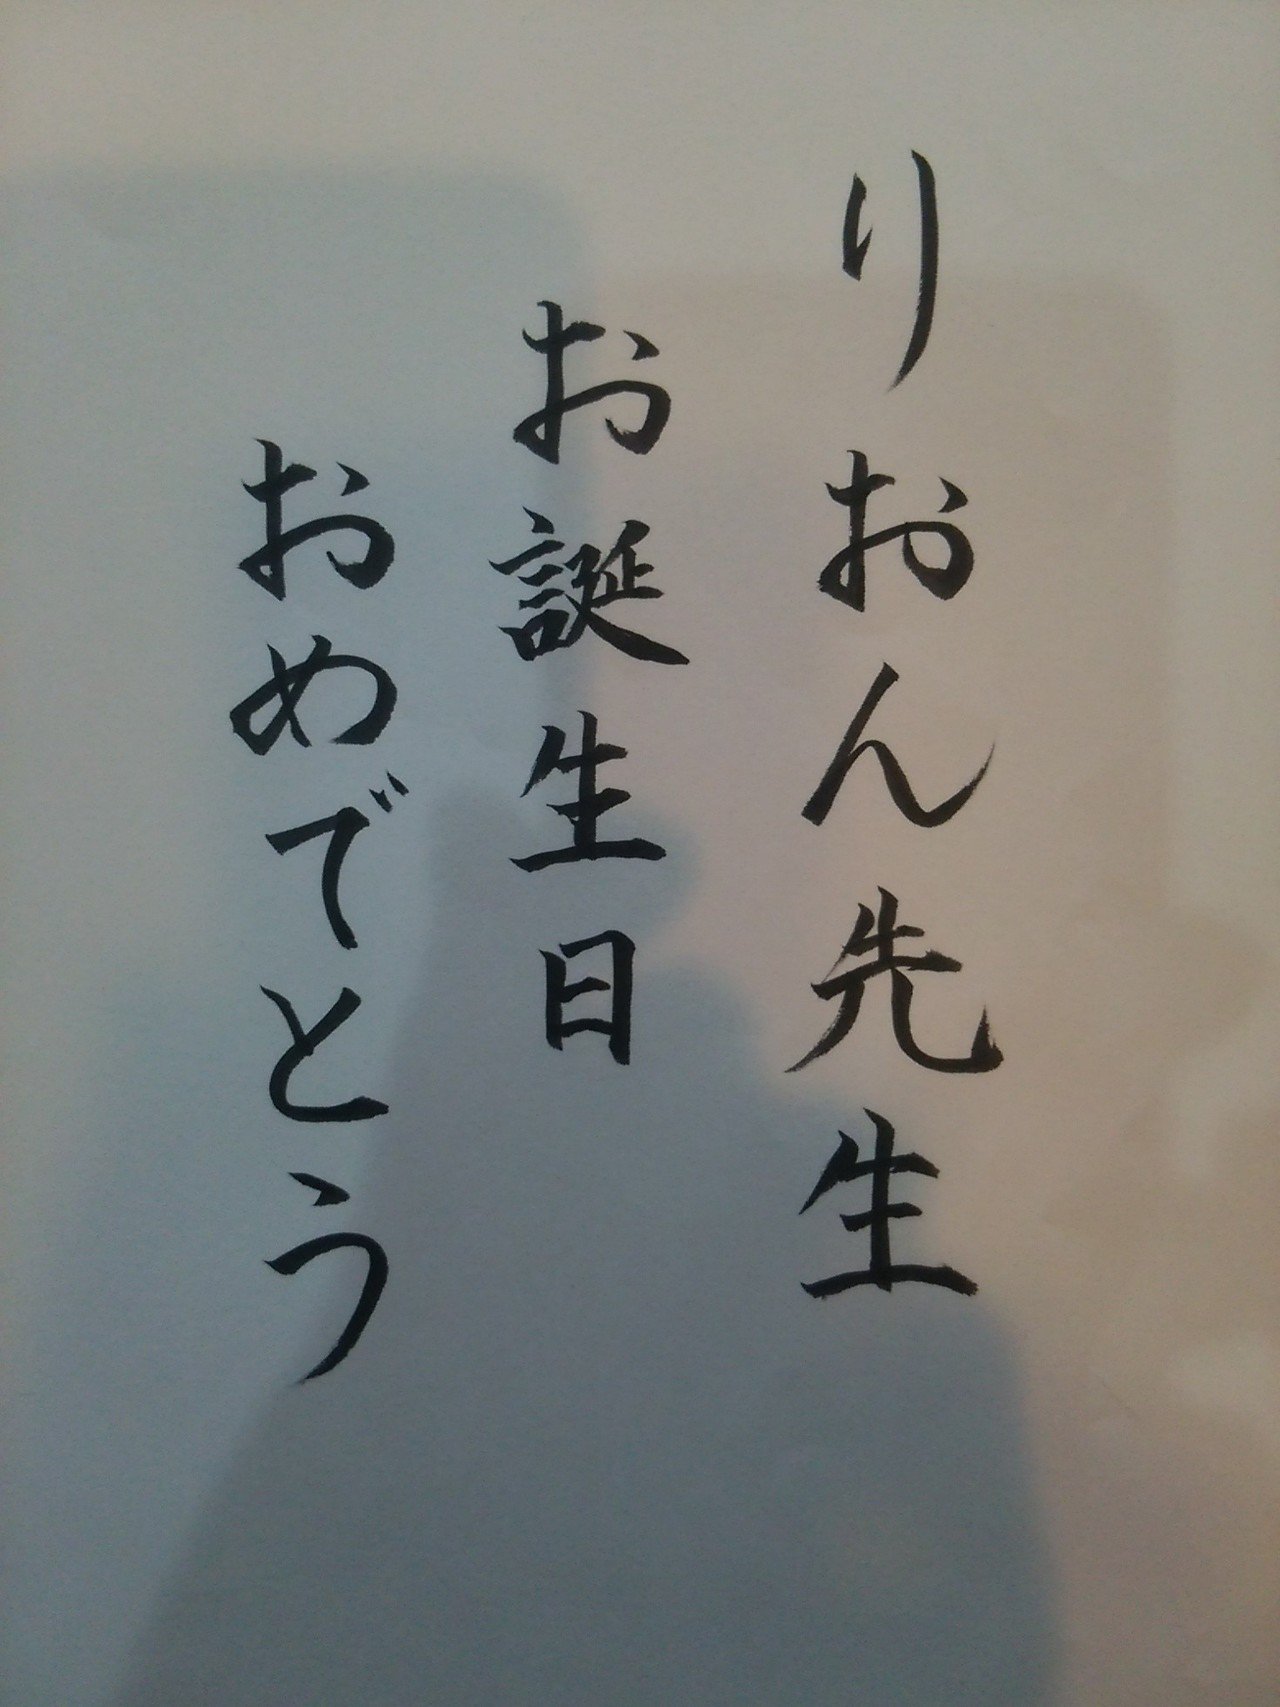 りおん先生
お誕生日
おめでとう